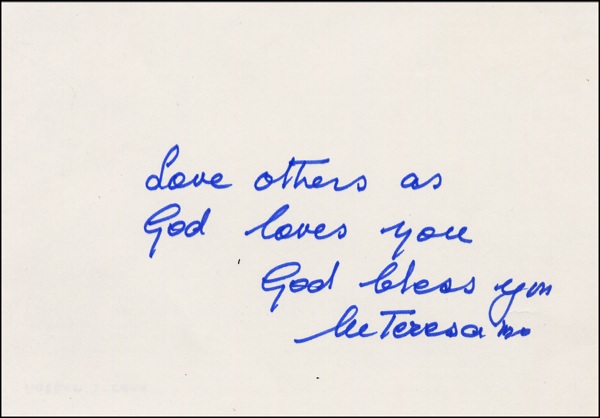 Love others as
God loves you
God bless you
M Teresa mc